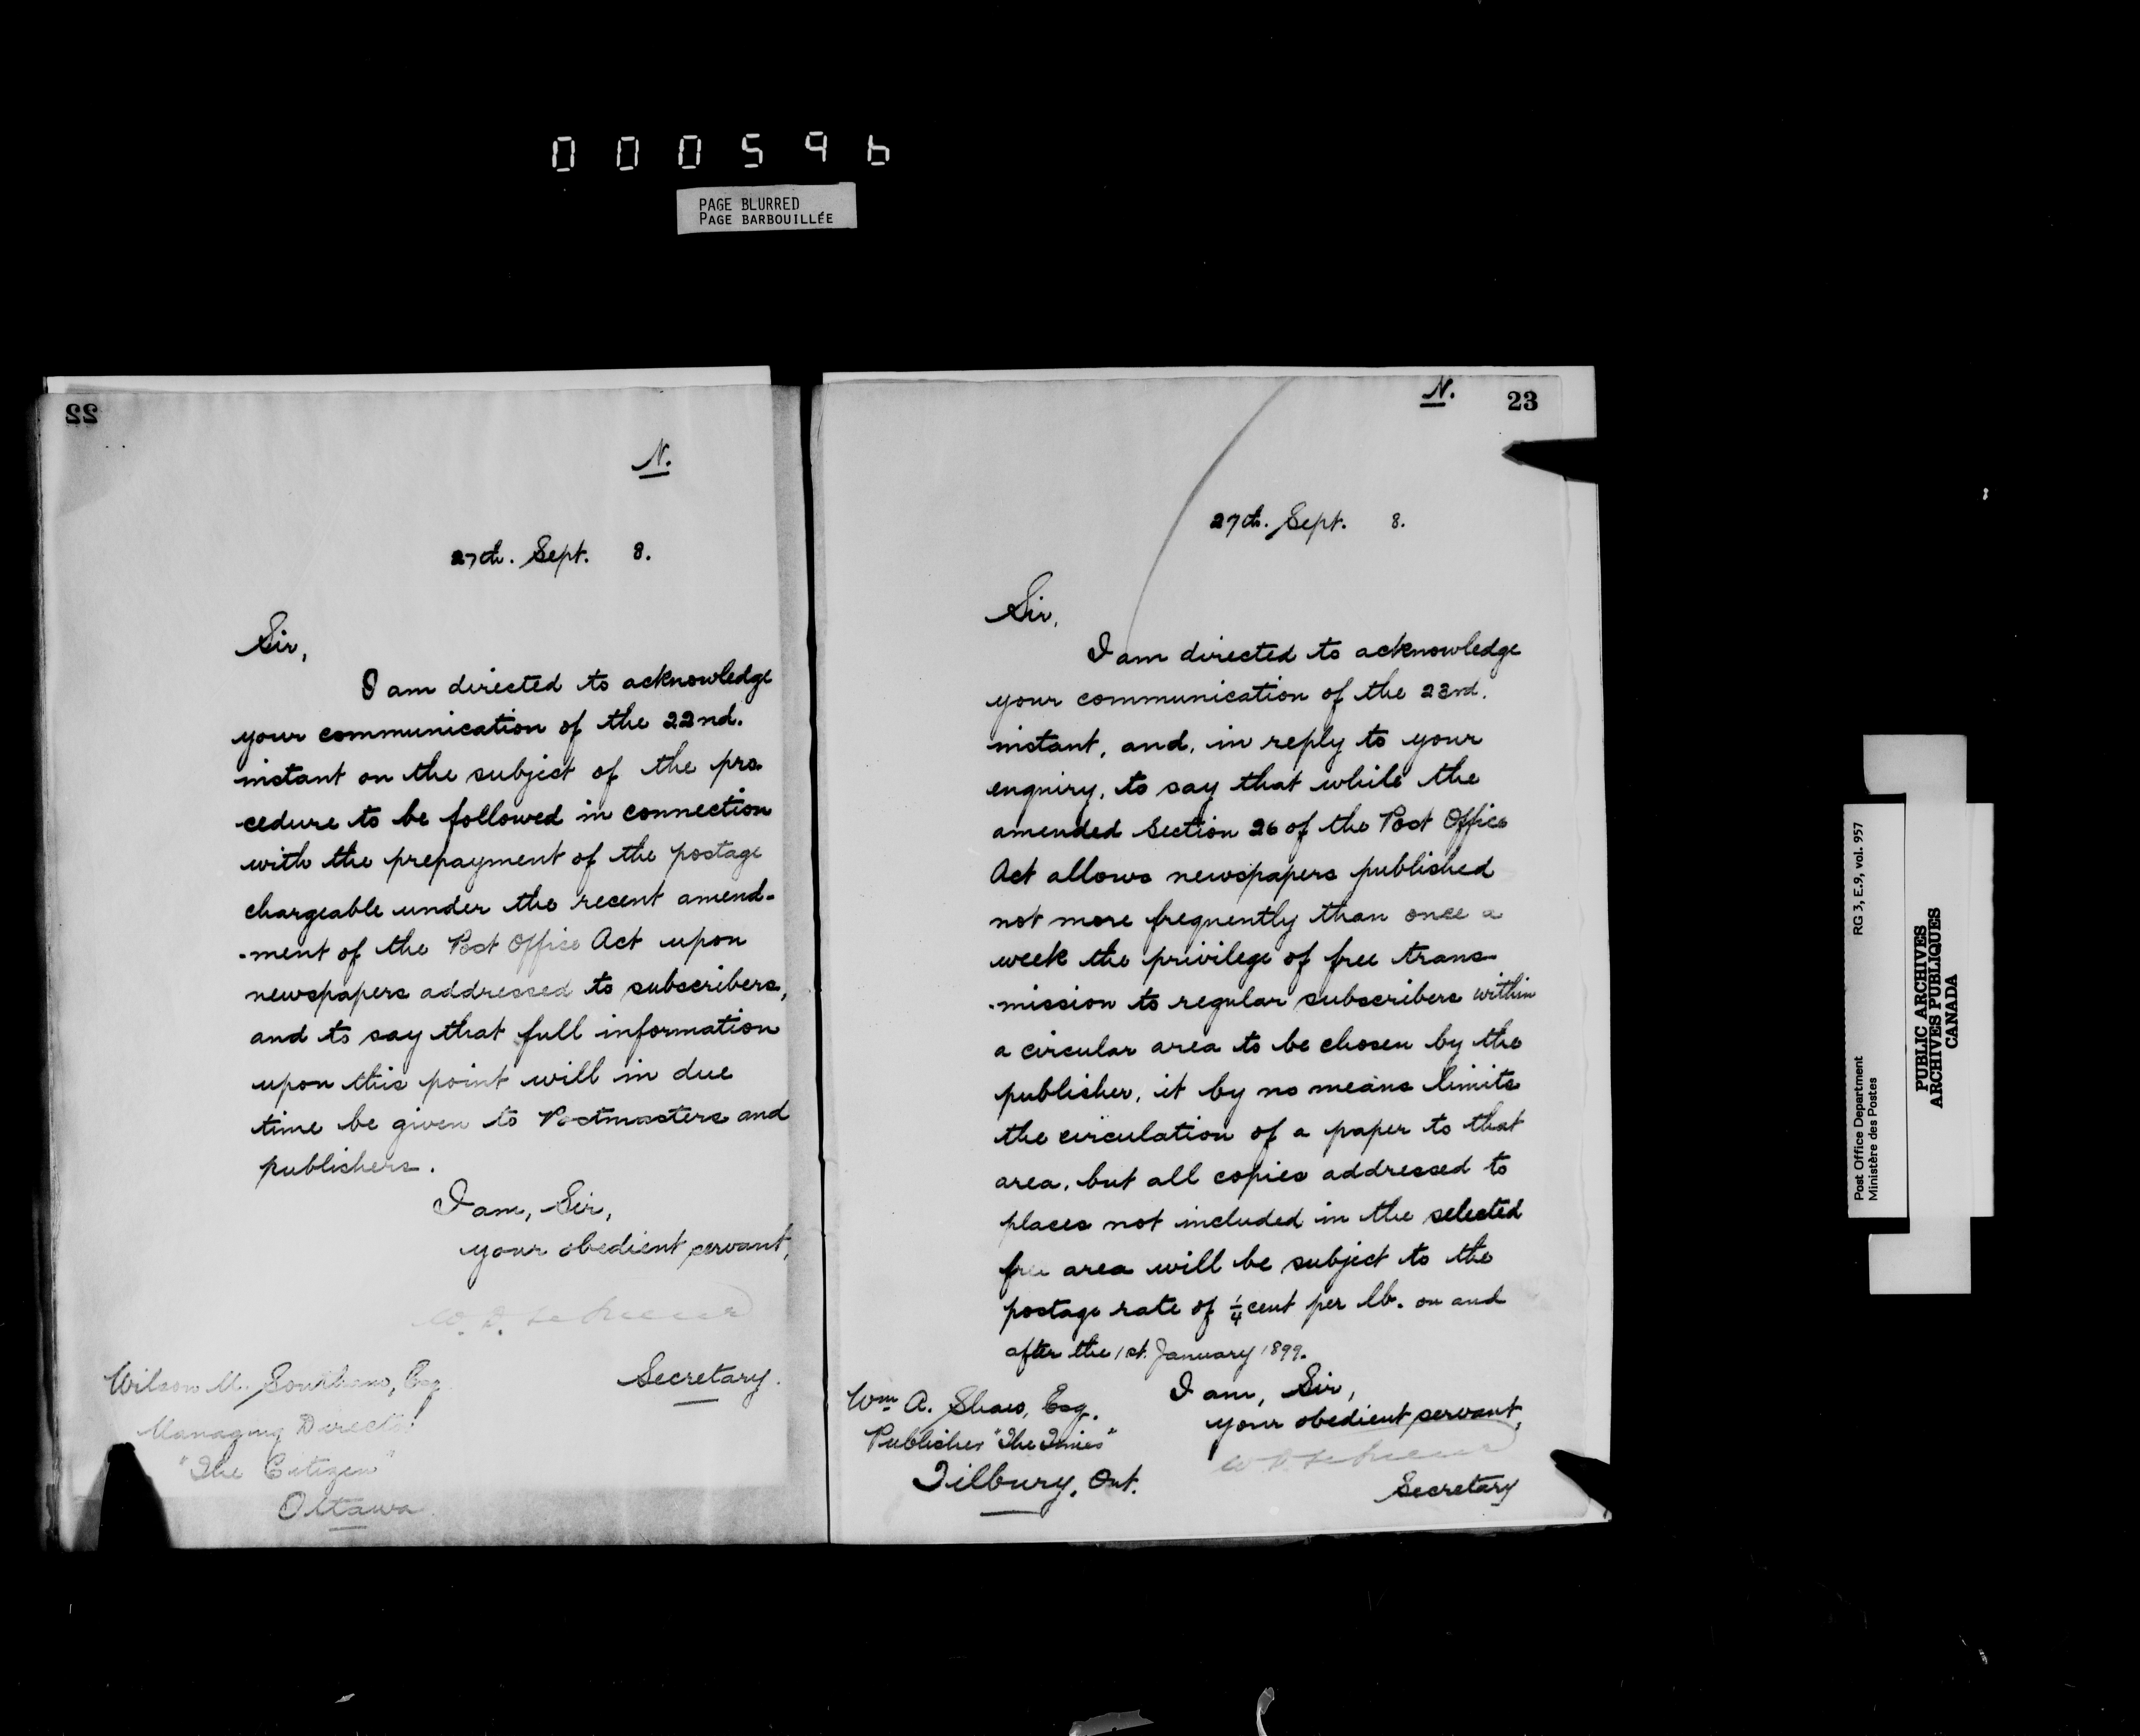 000596
PAGE BLURRED
PAGE BARBOUILLÉE
22
N.
27th. Sept. 8.
Sir,
I am directed to acknowledge
your communication of the 22nd.
instant on the subject of the pro
-cedure to be followed in connection
with the prepayment of the postage
chargeable under the recent amend-
-ment of the Post Office Act upon
newspapers addressed to subscribers,
and to say that full information
upon this point will in due
time be given to Postmasters and
publishers.
I am, Sir,
your obedient servant,
Secretary.
Wilson M. Southam, Esq.
Managing Director
"The Citizen"
Ottawa.
N. 23
27th. Sept. 8.
Sir,
I am directed to acknowledge
your communication of the 23rd.
instant, and, in reply to your
enquiry, to say that while the
amended Section 26 of the Post Office
Act allows newspapers published
not more frequently than once a
week the privilege of free trans-
-mission to regular subscribers within
a circular area to be chosen by the
publisher, it by no means limits
the circulation of a paper to that
area, but all copies addressed to
places not included in the selected
free area will be subject to the
postage rate of 1/4 cent per lb. on and
after the 1st. January 1899.
I am, Sir,
your obedient servant,
Secretary
Wm A. Shaw, Esq.
Publisher "The Times"
Tilbury, Ont.
Post Office Department RG 3, E.9, vol. 957
Ministère des Postes
PUBLIC ARCHIVES
ARCHIVES PUBLIQUES
CANADA